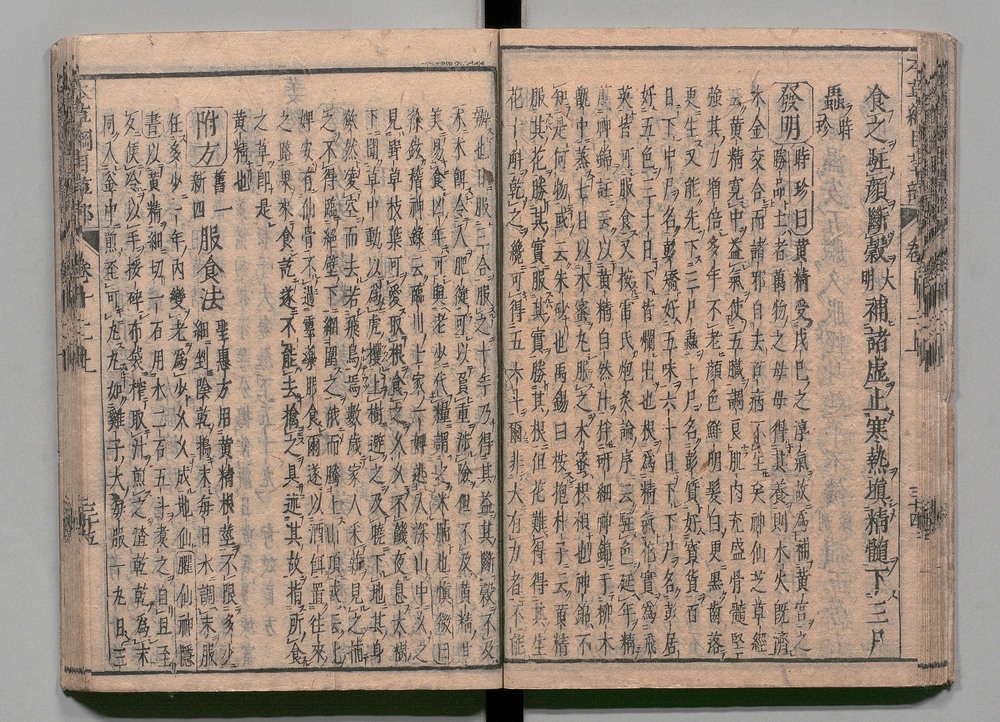 食之駐顔斷穀大明補諸虛止寒熱塡精髓下三尸
蟲時珍
發明時珍曰黃精受戊己之淳氣故為補黃宮之
勝品土者萬物之母母得其養則水火既濟
木金交合而諸邪自去百病不生矣神仙芝草經
云黃精寬中益氣使五臟調良肌肉充盛骨髓堅
強其力增倍多年不老顔色鮮明髮白更黑齒落
更生又能先下三尸蟲上尸名彭質好寶貨百
日下中尸名彭矯好五味六十日下下尸名彭居
好五色三十日下皆爛出也根為精氣花實為飛
英皆可服食又按雷氏炮炙論序云駐色延年精
蒸神錦註云黃精自然汁拌研細神錦于柳木
甑中蒸七日以木蜜丸服木蜜枳椇也神錦不
知是何物或云朱砂也禹錫曰按抱朴子云黃精
服其花勝其實服其實勝其根但花難得得其生
花十斛乾之纔可得五六斗爾非大有力者不能
辦也日服三合服之十年乃得其益其斷穀不及
朮朮餌令人肥健可以負重涉險但不及黃精甘
美易食凶年可與老少代糧謂之米脯也慎微曰
徐鉉稽神錄云臨川士家一婢逃入深山中久之
見野草枝葉可愛取根食之久久不饑夜息大樹
下聞草中動以為虎攫上樹避之及曉下地其身
欻然凌空而去若飛鳥焉數歲家人采薪見之捕
之不得網圍之俄而騰上山頂或云此
婢安有仙骨不過靈藥服食爾遂以酒餌置往來
之路果來食訖遂不能去擒之具述其故指所食
之草即是
黃精也
附方舊一新四服食法聖惠方用黃精根莖不限多少
細剉陰乾搗末每日水調末服
任多少一年內變老為少久久成地仙臞仙神隱
書以黃精細切一石用水二石五斗煮之自旦至
夕候冷以手挼碎布袋榨取汁煎之渣乾為末
同入釜中煎至可丸丸如雞子大每服一丸日三